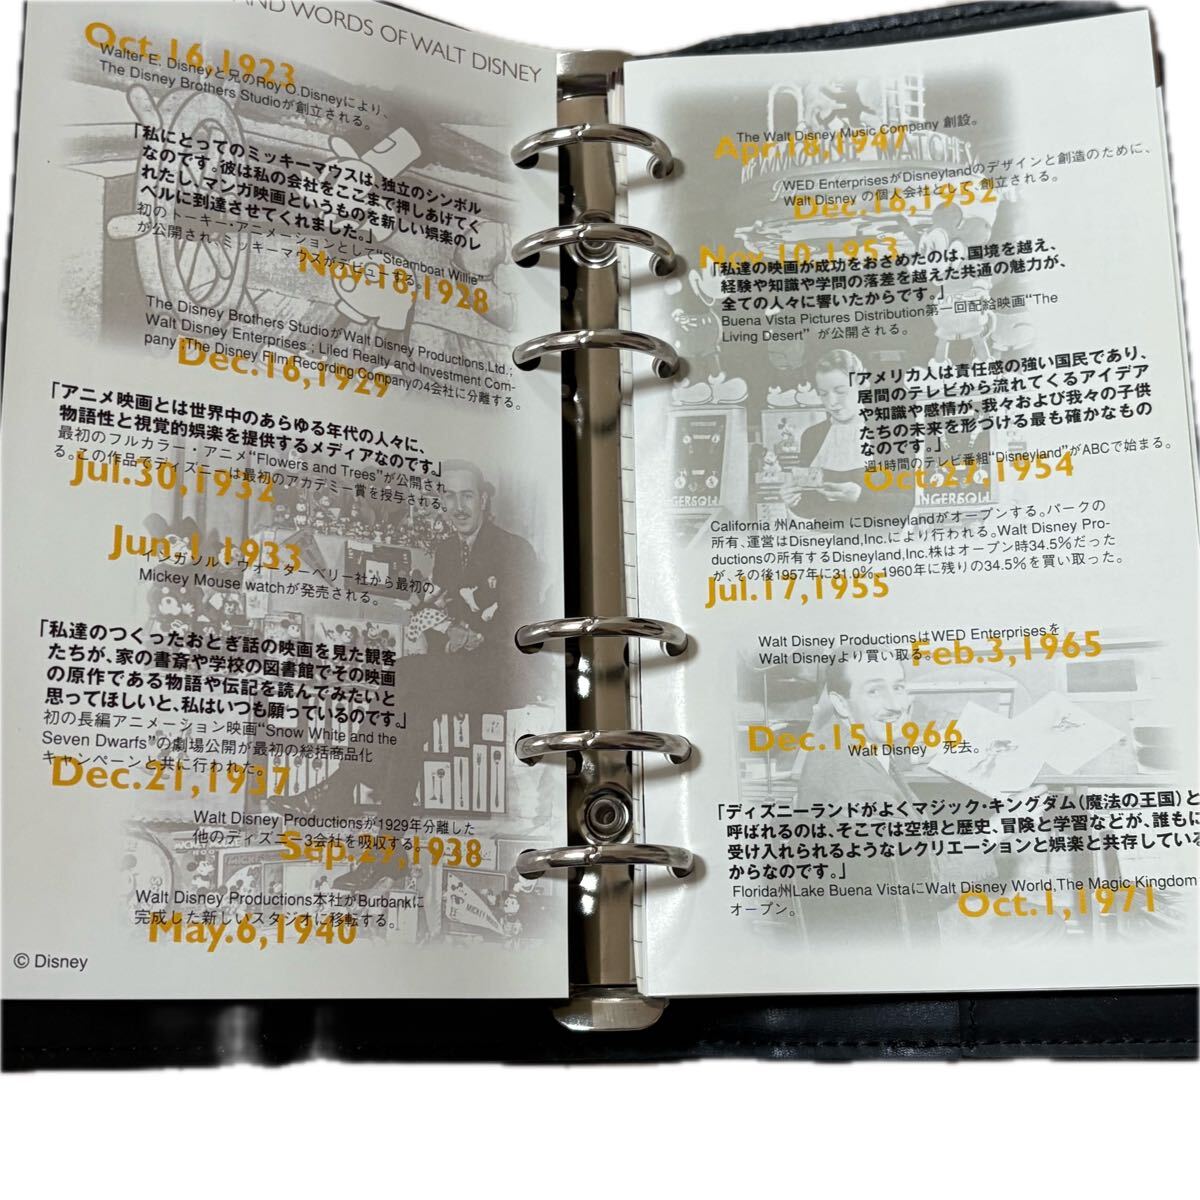 AND WORDS OF WALT DISNEY
Oct.16,1923
Walter E. Disneyと兄のRoy O.Disneyにより、
The Disney Brothers Studioが創立される。
「私にとってのミッキーマウスは、独立のシンボル
なのです。彼は私の会社をここまで押しあげてく
れたし、マンガ映画というものを新しい娯楽のレ
ベルに到達させてくれました。」
初のトーキー・アニメーションとして“Steamboat Willie”
が公開され、ミッキーマウスがデビューする。
Nov.18,1928
The Disney Brothers StudioがWalt Disney Productions,Ltd.;
Walt Disney Enterprises ; Liled Realty and Investment Com-
pany ;The Disney Film Recording Companyの4会社に分離する。
Dec.16,1929
「アニメ映画とは世界中のあらゆる年代の人々に、
物語性と視覚的娯楽を提供するメディアなのです。」
最初のフルカラー・アニメ“Flowers and Trees”が公開され
る。この作品でディズニーは最初のアカデミー賞を授与される。
Jul.30,1932
Jun.1,1933
インガソル・ウォーターベリー社から最初の
Mickey Mouse watchが発売される。
「私達のつくったおとぎ話の映画を見た観客
たちが、家の書斎や学校の図書館でその映画
の原作である物語や伝記を読んでみたいと
思ってほしいと、私はいつも願っているのです。」
初の長編アニメーション映画“Snow White and the
Seven Dwarfs”の劇場公開が最初の総括商品化
キャンペーンと共に行われた。
Dec.21,1937
Walt Disney Productionsが1929年分離した
他のディズニー3会社を吸収する。
Sep.29,1938
Walt Disney Productions本社がBurbankに
完成した新しいスタジオに移転する。
May.6,1940
© Disney
The Walt Disney Music Company 創設。
Apr.18,1947
WED EnterprisesがDisneylandのデザインと創造のために、
Walt Disney の個人会社として、創立される。
Dec.16,1952
Nov.10,1953
「私達の映画が成功をおさめたのは、国境を越え、
経験や知識や学問の落差を越えた共通の魅力が、
全ての人々に響いたからです。」
Buena Vista Pictures Distribution第一回配給映画“The
Living Desert” が公開される。
「アメリカ人は責任感の強い国民であり、
居間のテレビから流れてくるアイデア
や知識や感情が、我々および我々の子供
たちの未来を形づける最も確かなもの
なのです。」
週1時間のテレビ番組“Disneyland”がABCで始まる。
Oct.27,1954
California 州Anaheim にDisneylandがオープンする。パークの
所有、運営はDisneyland,Inc.により行われる。Walt Disney Pro-
ductionsの所有するDisneyland,Inc.株はオープン時34.5%だった
が、その後1957年に31.0%、1960年に残りの34.5%を買い取った。
Jul.17,1955
Walt Disney ProductionsはWED Enterprisesを
Walt Disneyより買い取る。
Feb.3,1965
Dec.15,1966
Walt Disney 死去。
「ディズニーランドがよくマジック・キングダム(魔法の王国)と
呼ばれるのは、そこでは空想と歴史、冒険と学習などが、誰もに
受け入れられるようなレクリエーションと娯楽と共存している
からなのです。」
Florida州Lake Buena VistaにWalt Disney World,The Magic Kingdom
オープン。
Oct.1,1971